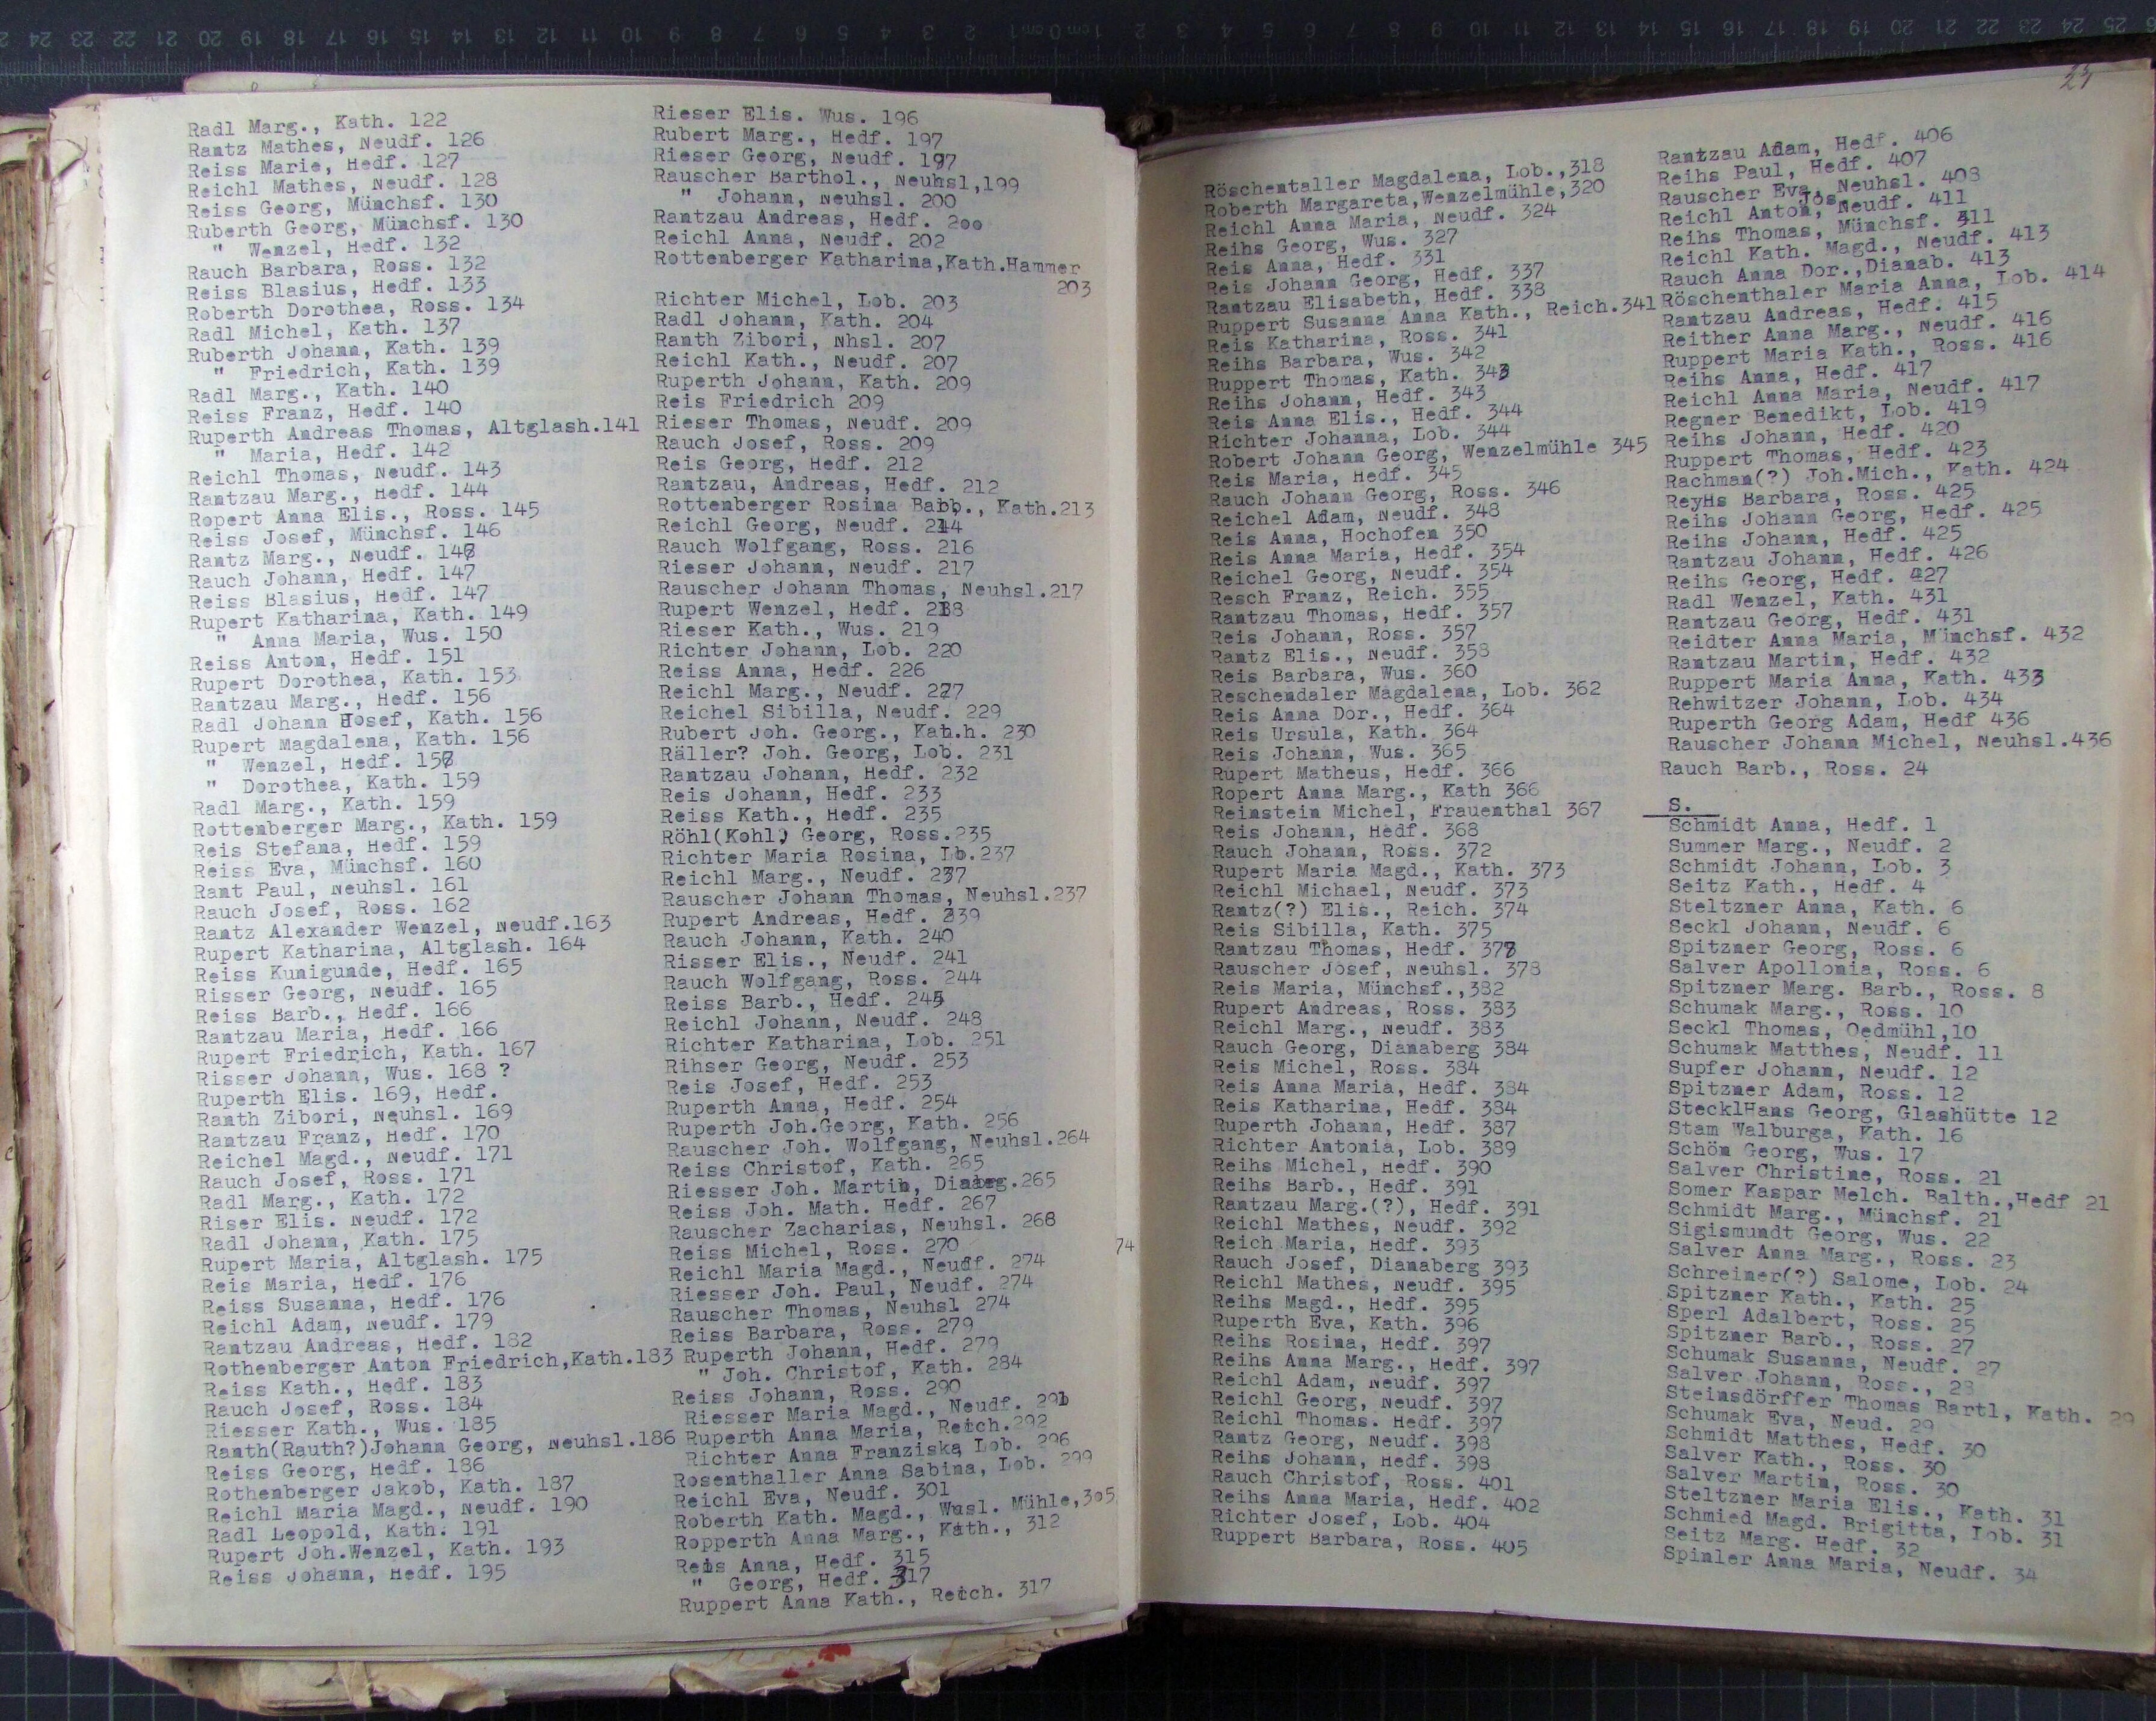 Radl Marg., Kath. 122
Rantz Mathes, Neudf. 126
Reiss Marie, Hedf. 127
Reichl Mathes, Neudf. 128
Reiss Georg, Münchsf. 130
Ruberth Georg, Münchsf. 130
" Wenzel, Hedf. 132
Rauch Barbara, Ross. 132
Reiss Blasius, Hedf. 133
Roberth Dorothea, Ross. 134
Radl Michel, Kath. 137
Ruberth Johann, Kath. 139
" Friedrich, Kath. 139
Radl Marg., Kath. 140
Reiss Franz, Hedf. 140
Ruperth Andreas Thomas, Altglash.141
" Maria, Hedf. 142
Reichl Thomas, Neudf. 143
Rantzau Marg., Hedf. 144
Ropert Anna Elis., Ross. 145
Reiss Josef, Münchsf. 146
Rantz Marg., Neudf.
Rauch Johann, Hedf. 147
Reiss Blasius, Hedf. 147
Rupert Katharina, Kath. 149
" Anna Maria, Wus. 150
Reiss Anton, Hedf. 151
Rupert Dorothea, Kath. 153
Rantzau Marg., Hedf. 156
Radl Johann Josef, Kath. 156
Rupert Magdalena, Kath. 156
" Wenzel, Hedf.
" Dorothea, Kath. 159
Radl Marg., Kath. 159
Rottenberger Marg., Kath. 159
Reis Stefana, Hedf. 159
Reiss Eva, Münchsf. 160
Rant Paul, Neuhsl. 161
Rauch Josef, Ross. 162
Rantz Alexander Wenzel, Neudf.163
Rupert Katharina, Altglash. 164
Reiss Kunigunde, Hedf. 165
Risser Georg, Neudf. 165
Reiss Barb., Hedf. 166
Rantzau Maria, Hedf. 166
Rupert Friedrich, Kath. 167
Risser Johann, Wus. 168 ?
Ruperth Elis. 169, Hedf.
Ranth Zibori, Neuhsl. 169
Rantzau Franz, Hedf. 170
Reichel Magd., Neudf. 171
Rauch Josef, Ross. 171
Radl Marg., Kath. 172
Riser Elis. Neudf. 172
Radl Johann, Kath. 175
Rupert Maria, Altglash. 175
Reis Maria, Hedf. 176
Reiss Susanna, Hedf. 176
Reichl Adam, Neudf. 179
Rantzau Andreas, Hedf. 182
Rothenberger Anton Friedrich,Kath.183
Reiss Kath., Hedf. 183
Rauch Josef, Ross. 184
Riesser Kath., Wus. 185
Ranth(Rauth?)Johann Georg, Neuhsl.186
Reiss Georg, Hedf. 186
Rothenberger Jakob, Kath. 187
Reichl Maria Magd., Neudf. 190
Radl Leopold, Kath. 191
Rupert Joh.Wenzel, Kath. 193
Reiss Johann, Hedf. 195
Rieser Elis. Wus. 196
Rubert Marg., Hedf. 197
Rieser Georg, Neudf. 197
Rauscher Barthol., Neuhsl,199
" Johann, Neuhsl. 200
Rantzau Andreas, Hedf. 200
Reichl Anna, Neudf. 202
Rottenberger Katharina,Kath.Hammer
203
Richter Michel, Lob. 203
Radl Johann, Kath. 204
Ranth Zibori, Nhsl. 207
Reichl Kath., Neudf. 207
Ruperth Johann, Kath. 209
Reis Friedrich 209
Rieser Thomas, Neudf. 209
Rauch Josef, Ross. 209
Reis Georg, Hedf. 212
Rantzau, Andreas, Hedf. 212
Rottenberger Rosina Barb., Kath.213
Reichl Georg, Neudf. 214
Rauch Wolfgang, Ross. 216
Rieser Johann, Neudf. 217
Rauscher Johann Thomas, Neuhsl.217
Rupert Wenzel, Hedf. 218
Rieser Kath., Wus. 219
Richter Johann, Lob. 220
Reiss Anna, Hedf. 226
Reichl Marg., Neudf. 227
Reichel Sibilla, Neudf. 229
Rubert Joh. Georg., Kath.h. 230
Räller? Joh. Georg, Lob. 231
Rantzau Johann, Hedf. 232
Reis Johann, Hedf. 233
Reiss Kath., Hedf. 235
Röhl(Kohl) Georg, Ross.235
Richter Maria Rosina, Lb.237
Reichl Marg., Neudf. 237
Rauscher Johann Thomas, Neuhsl.237
Rupert Andreas, Hedf. 239
Rauch Johann, Kath. 240
Risser Elis., Neudf. 241
Rauch Wolfgang, Ross. 244
Reiss Barb., Hedf. 245
Reichl Johann, Neudf. 248
Richter Katharina, Lob. 251
Rihser Georg, Neudf. 253
Reis Josef, Hedf. 253
Ruperth Anna, Hedf. 254
Ruperth Joh.Georg, Kath. 256
Rauscher Joh. Wolfgang, Neuhsl.264
Reiss Christof, Kath. 265
Riesser Joh. Martin, 265
Reiss Joh. Math. Hedf. 267
Rauscher Zacharias, Neuhsl. 268
Reiss Michel, Ross. 270
Reichl Maria Magd., Neudf. 274
Riesser Joh. Paul, Neudf. 274
Rauscher Thomas, Neuhsl 274
Reiss Barbara, Ross. 279
Ruperth Johann, Hedf. 279
" Joh. Christof, Kath. 284
Reiss Johann, Ross. 290
Riesser Maria Magd., Neudf. 291
Ruperth Anna Maria, Reich.292
Richter Anna Franziska Lob. 296
Rosenthaller Anna Sabina, Lob. 299
Reichl Eva, Neudf. 301
Roberth Kath. Magd., Wusl. Mühle,305
Ropperth Anna Marg., Kath., 312
Reis Anna, Hedf. 315
" Georg, Hedf. 317
Ruppert Anna Kath., Reich. 317
74
Röschentaller Magdalena, Lob.,318
Roberth Margareta,Wenzelmühle,320
Reichl Anna Maria, Neudf. 324
Reihs Georg, Wus. 327
Reis Anna, Hedf. 331
Reis Johann Georg, Hedf. 337
Rantzau Elisabeth, Hedf. 338
Ruppert Susanna Anna Kath., Reich.341
Reis Katharina, Ross. 341
Reihs Barbara, Wus. 342
Ruppert Thomas, Kath. 343
Reihs Johann, Hedf. 343
Reis Anna Elis., Hedf. 344
Richter Johanna, Lob. 344
Robert Johann Georg, Wenzelmühle 345
Reis Maria, Hedf. 345
Rauch Johann Georg, Ross. 346
Reichel Adam, Neudf. 348
Reis Anna, Hochofen 350
Reis Anna Maria, Hedf. 354
Reichel Georg, Neudf. 354
Resch Franz, Reich. 355
Rantzau Thomas, Hedf. 357
Reis Johann, Ross. 357
Rantz Elis., Neudf. 358
Reis Barbara, Wus. 360
Reschendaler Magdalena, Lob. 362
Reis Anna Dor., Hedf. 364
Reis Ursula, Kath. 364
Reis Johann, Wus. 365
Rupert Matheus, Hedf. 366
Ropert Anna Marg., Kath 366
Reinstein Michel, Frauenthal 367
Reis Johann, Hedf. 368
Rauch Johann, Ross. 372
Rupert Maria Magd., Kath. 373
Reichl Michael, Neudf. 373
Rantz(?) Elis., Reich. 374
Reis Sibilla, Kath. 375
Rantzau Thomas, Hedf. 378
Rauscher Josef, Neuhsl. 378
Reis Maria, Münchsf.,382
Rupert Andreas, Ross. 383
Reichl Marg., Neudf. 383
Rauch Georg, Dianaberg 384
Reis Michel, Ross. 384
Reis Anna Maria, Hedf. 384
Reis Katharina, Hedf. 384
Ruperth Johann, Hedf. 387
Richter Antonia, Lob. 389
Reihs Michel, Hedf. 390
Reihs Barb., Hedf. 391
Rantzau Marg.(?), Hedf. 391
Reichl Mathes, Neudf. 392
Reich Maria, Hedf. 393
Rauch Josef, Dianaberg 393
Reichl Mathes, Neudf. 395
Reihs Magd., Hedf. 395
Ruperth Eva, Kath. 396
Reihs Rosina, Hedf. 397
Reihs Anna Marg., Hedf. 397
Reichl Adam, Neudf. 397
Reichl Georg, Neudf. 397
Reichl Thomas. Hedf. 397
Rantz Georg, Neudf. 398
Reihs Johann, Hedf. 398
Rauch Christof, Ross. 401
Reihs Anna Maria, Hedf. 402
Richter Josef, Lob. 404
Ruppert Barbara, Ross. 405
Rantzau Adam, Hedf. 406
Reihs Paul, Hedf. 407
Rauscher Eva, Neuhsl. 408
Jos
Reichl Anton, Neudf. 411
Reihs Thomas, Münchsf. 411
Reichl Kath. Magd., Neudf. 413
Rauch Anna Dor.,Dianab. 413
Röschenthaler Maria Anna, Lob. 414
Rantzau Andreas, Hedf. 415
Reither Anna Marg., Neudf. 416
Ruppert Maria Kath., Ross. 416
Reihs Anna, Hedf. 417
Reichl Anna Maria, Neudf. 417
Regner Benedikt, Lob. 419
Reihs Johann, Hedf. 420
Ruppert Thomas, Hedf. 423
Rachman(?) Joh.Mich., Kath. 424
ReyHs Barbara, Ross. 425
Reihs Johann Georg, Hedf. 425
Reihs Johann, Hedf. 425
Rantzau Johann, Hedf. 426
Reihs Georg, Hedf. 427
Radl Wenzel, Kath. 431
Rantzau Georg, Hedf. 431
Reidter Anna Maria, Münchsf. 432
Rantzau Martin, Hedf. 432
Ruppert Maria Anna, Kath. 433
Rehwitzer Johann, Lob. 434
Ruperth Georg Adam, Hedf 436
Rauscher Johann Michel, Neuhsl.436
Rauch Barb., Ross. 24
S.
Schmidt Anna, Hedf. 1
Summer Marg., Neudf. 2
Schmidt Johann, Lob. 3
Seitz Kath., Hedf. 4
Steltzner Anna, Kath. 6
Seckl Johann, Neudf. 6
Spitzner Georg, Ross. 6
Salver Apollonia, Ross. 6
Spitzner Marg. Barb., Ross. 8
Schumak Marg., Ross. 10
Seckl Thomas, Oedmühl,10
Schumak Matthes, Neudf. 11
Supfer Johann, Neudf. 12
Spitzner Adam, Ross. 12
StecklHans Georg, Glashütte 12
Stam Walburga, Kath. 16
Schön Georg, Wus. 17
Salver Christine, Ross. 21
Somer Kaspar Melch. Balth.,Hedf 21
Schmidt Marg., Münchsf. 21
Sigismundt Georg, Wus. 22
Salver Anna Marg., Ross. 23
Schreiner(?) Salome, Lob. 24
Spitzner Kath., Kath. 25
Sperl Adalbert, Ross. 25
Spitzner Barb., Ross. 27
Schumak Susanna, Neudf. 27
Salver Johann, Ross., 28
Steinsdörffer Thomas Bartl, Kath. 29
Schumak Eva, Neud. 29
Schmidt Matthes, Hedf. 30
Salver Kath., Ross. 30
Salver Martin, Ross. 30
Steltzner Maria Elis., Kath. 31
Schmied Magd. Brigitta, Lob. 31
Seitz Marg. Hedf. 32
Spinler Anna Maria, Neudf. 34